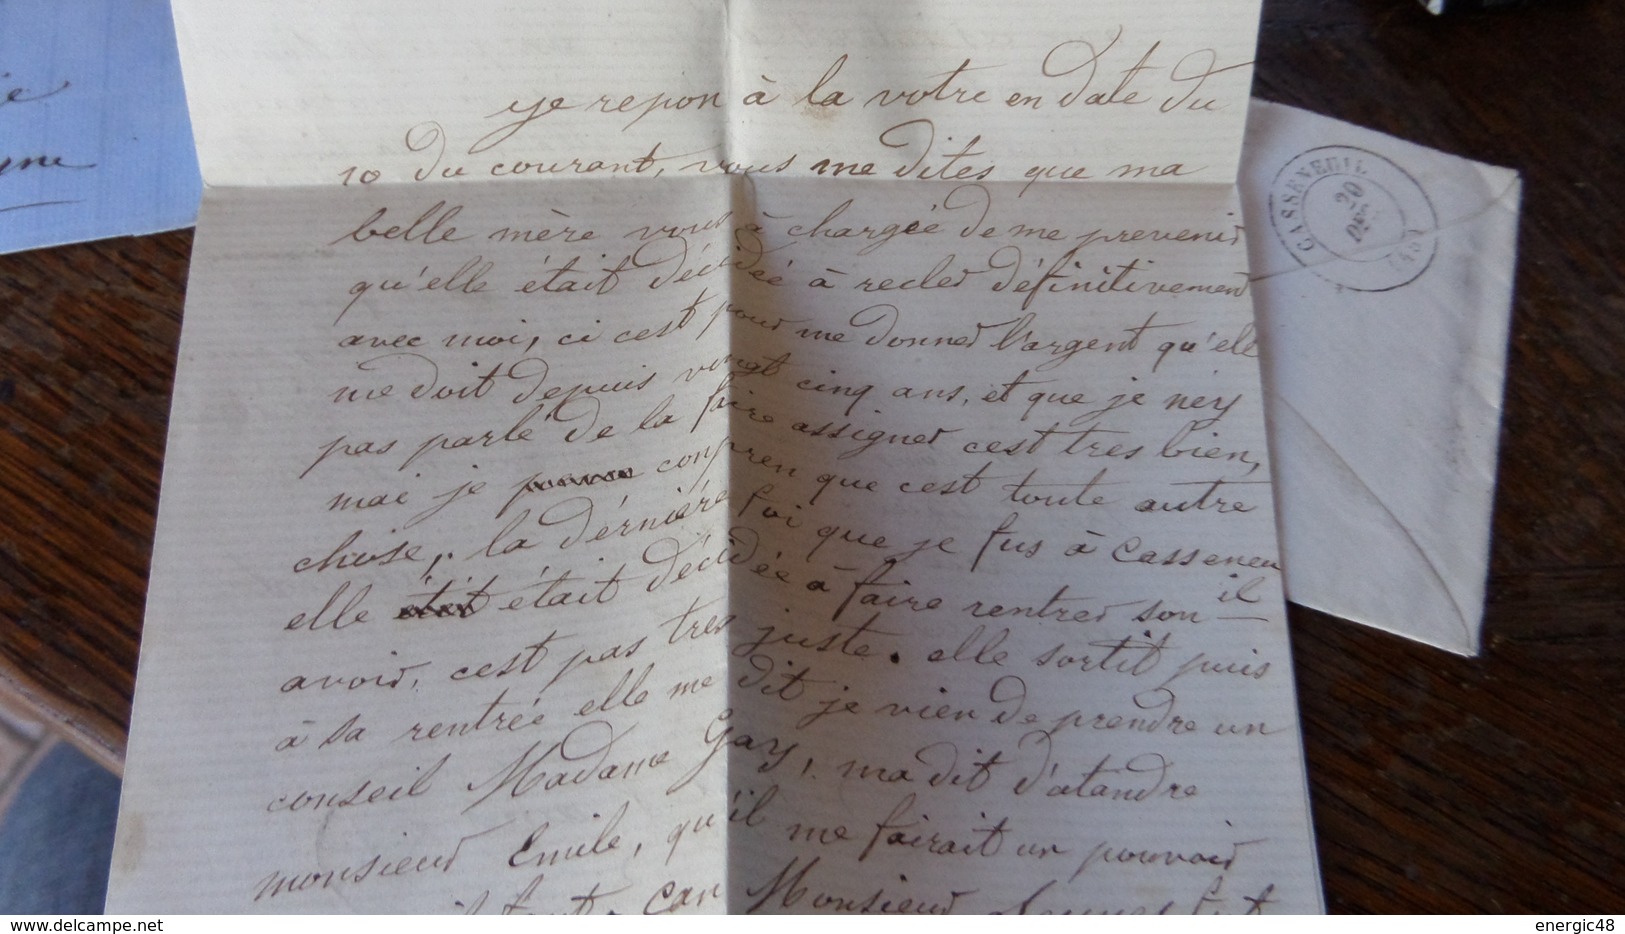 je repon à la votre en date du
10 du courant, vous me dites que ma
belle mère vous à chargée de me prevenir
qu'elle était décidée à recler définitivement
avec moi, ci cest pour me donner l'argent qu'elle
me doit depuis vingt cinq ans, et que je n'ey
pas parlé de la faire assigner cest tres bien,
mai je conpren que cest toute autre
chose, la dérnière foi que je fus à Casseneu
il
elle était décidée à faire rentrer son
avoir, cest pas tres juste. elle sortit puis
à sa rentrée elle me dit je vien de prendre un
conseil Madame Gay, ma dit d'atandre
monsieur Emile, qu'il me fairait un pouvoir
car Monsieur
CASSENEUIL
20
DEC
energic48